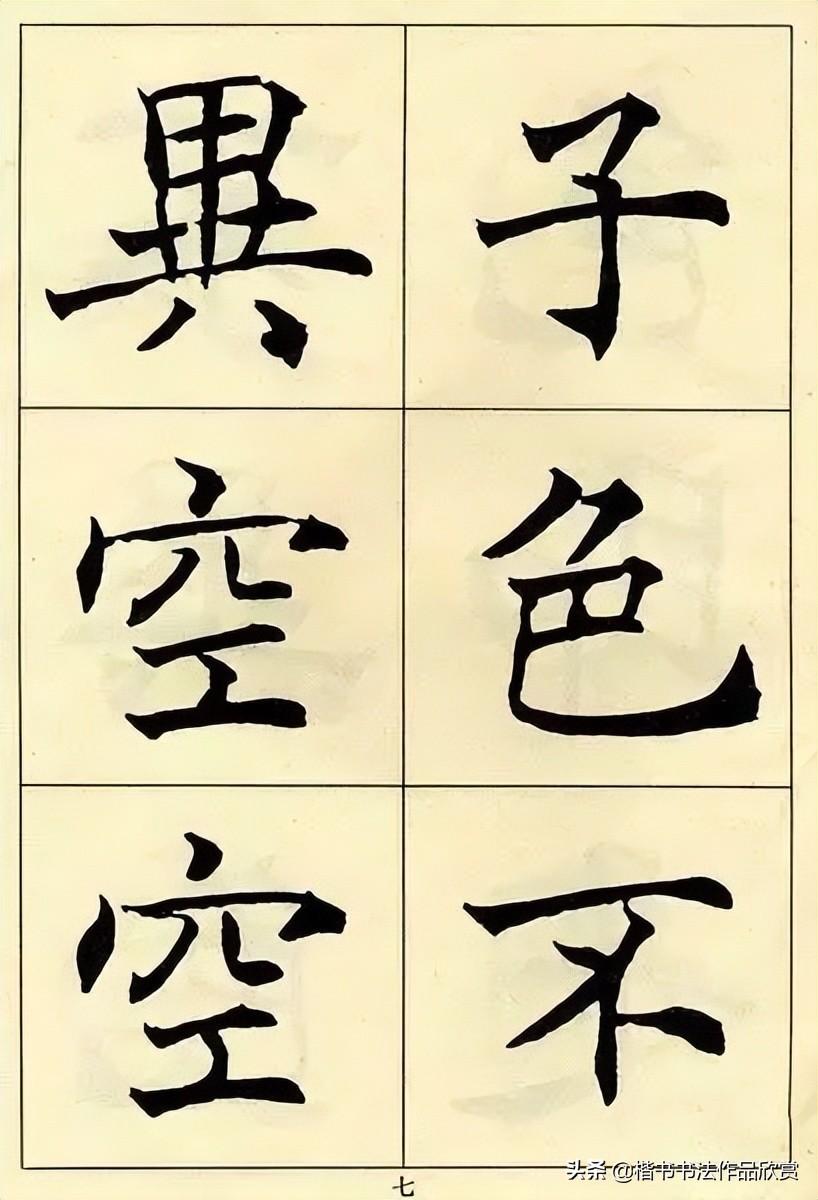 子色不
異空空
七
头条 @楷书书法作品欣赏